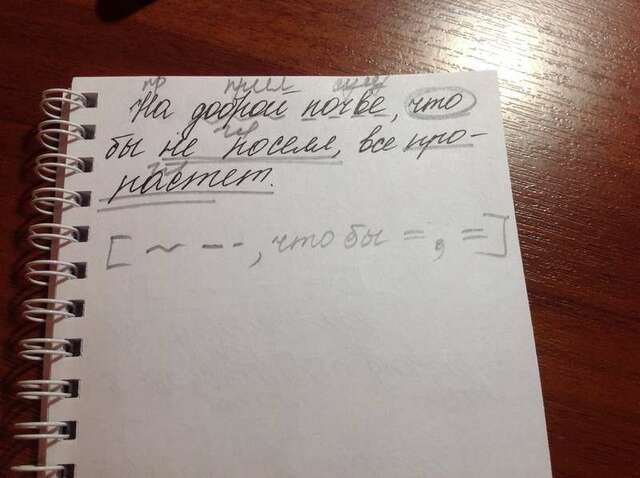 пр прил сущ
На доброй почве, что
гл
бы не посеял, все про-
гл
растет.
[~ --, что бы =, =]